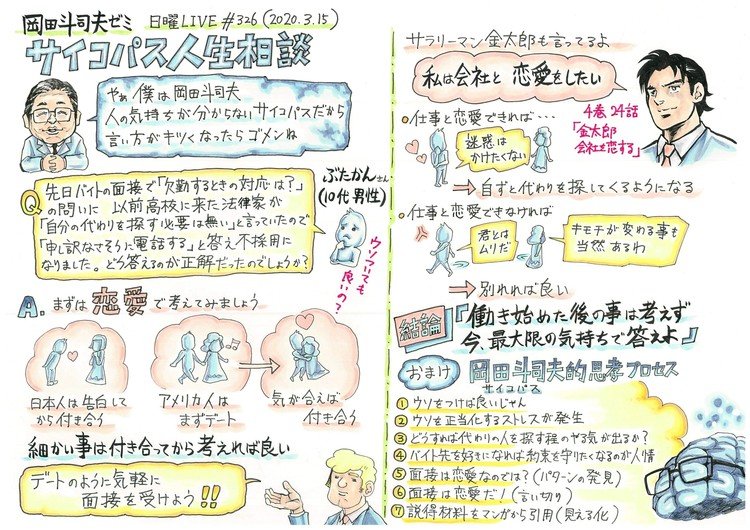 岡田斗司夫ゼミ 日曜LIVE #326 (2020.3.15)
サイコパス人生相談
やぁ 僕は岡田斗司夫
人の気持ちが分からないサイコパスだから
言い方がキツくなったらゴメンね
ぶたかんさん
(10代男性)
Q
先日バイトの面接で「欠勤するときの対応は?」
の問いに 以前高校に来た法律家が
「自分の代わりを探す必要は無い」と言っていたので
「申し訳なさそうに電話する」と答え不採用に
なりました。どう答えるのが正解だったのでしょうか?
ウソついても
良いの?
A. まずは 恋愛で考えてみましょう
日本人は告白して
から付き合う
アメリカ人は
まずデート
気が合えば
付き合う
細かい事は付き合ってから考えれば良い
デートのように気軽に
面接を受けよう!!
サラリーマン金太郎も言ってるよ
私は会社と 恋愛をしたい
4巻24話
「金太郎
会社を恋する」
・仕事と恋愛できれば…
迷惑は
かけたくない
⇒自ずと代わりを探してくるようになる
・仕事と恋愛できなければ
君とは
ムリだ
キモチが変わる事も
当然あるわ
⇒別れれば良い
結論
『働き始めた後の事は考えず
今、最大限の気持ちで答えよ』
おまけ 岡田斗司夫的思考プロセス
サイコパス
① ウソをつけば良いじゃん
② ウソを正当化するストレスが発生
③ どうすれば代わりの人を探す程のやる気が出るか?
④ バイト先を好きになれば約束を守りたくなるのが人情
⑤ 面接は恋愛なのでは?(パターンの発見)
⑥ 面接は恋愛だ!(言い切り)
⑦ 説得材料をマンガから引用(見える化)